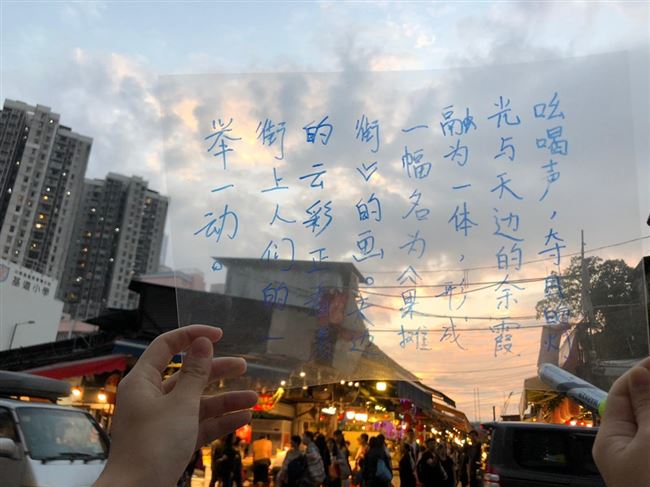 吆喝声，夺目的火
光与天边的余霞
融为一体，形成
一幅名为《果摊
街》的画。天边
的云彩正看着
街上人们的一
举一动。
基道小學